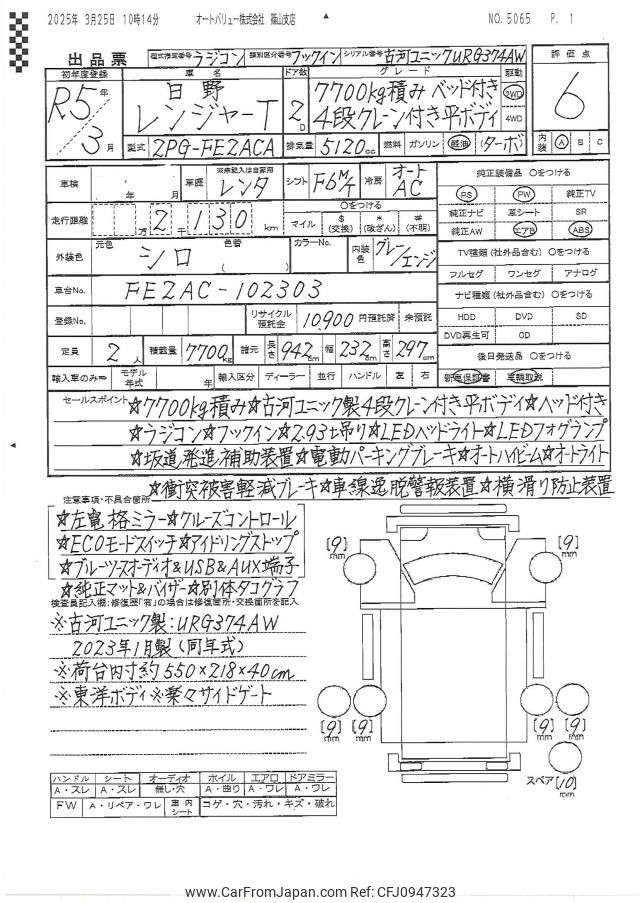 2025年 3月25日 10時14分 オートバリュー株式会社 篠山支店 NO. 5065 P. 1
出品票 型式指定番号 ラジコン 類別区分番号 フックイン シリアル番号 古河ユニックURG374AW 評価点
初年度登録 車名 ドア数 グレード 駆動
R5年 日野 7700kg積み ベッド付き 2WD 6
3月 レンジャーT 2D 4段クレーン付き平ボディ 4WD
型式 2PG-FE2ACA 排気量 5120cc 燃料 ガソリン 軽油 (ターボ) 内装 A B C
車検 年 月 車歴 ※無記入は自家用 レンタ シフト F6M/T 冷房 オートAC 純正装備品 〇をつける
PS PW 純正TV
走行距離 万2千130km 〇をつける マイル $(交換) *(改ざん) #(不明) 純正ナビ 革シート SR
純正AW エアB ABS
外装色 元色 シロ 色替 ( ) カラーNo. 内装色 グレー/エンジ TV種類(社外品含む) 〇をつける
フルセグ ワンセグ アナログ
車台No. FE2AC-102303 ナビ種類(社外品含む) 〇をつける
登録No. リサイクル預託金 10,900円預託済 未預託 HDD DVD SD
DVD再生可 CD
定員 2人 積載量 7700kg 諸元 長さ 942cm 幅 232cm 高さ 297cm 後日発送品 〇をつける
輸入車のみ⇒ モデル年式 年 輸入区分 ディーラー 並行 ハンドル 左 右 新車保証書 車輌取説
セールスポイント ☆7700kg積み☆古河ユニック製4段クレーン付き平ボディ☆ベッド付き
☆ラジコン☆フックイン☆2.93t吊り☆LEDヘッドライト☆LEDフォグランプ
☆坂道発進補助装置☆電動パーキングブレーキ☆オートハイビーム☆オートライト
☆衝突被害軽減ブレーキ☆車線逸脱警報装置☆横滑り防止装置
注意事項・不具合箇所
☆左電格ミラー☆クルーズコントロール
☆ECOモードスイッチ☆アイドリングストップ
☆ブルーツースオーディオ&USB&AUX端子
☆純正マット&バイザー☆別体タコグラフ
検査員記入欄:修復歴「有」の場合は修復箇所・交換箇所を記入
※古河ユニック製:URG374AW
2023年1月製(同年式)
※荷台内寸約550×218×40cm
※東洋ボディ※楽々サイドゲート
[9]mm [9]mm
[9]mm [9]mm [9]mm [9]mm
スペア[10]mm
ハンドル シート オーディオ ホイル エアロ ドアミラー
A・スレ A・スレ 無し・穴 A・曲り A・ワレ A・ワレ
FW A・リペア・ワレ 車内シート コゲ・穴・汚れ・キズ・破れ
www.CarFromJapan.com Ref:CFJ0947323